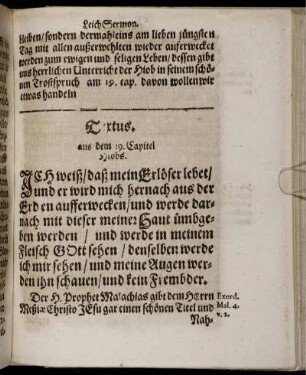 Leich Sermon.
bleiben/ sondern dermahleins am lieben jüngsten
Tag mit allen außerwehlten wieder auferwecket
werden zum ewigen und seligen Leben/ dessen gibt
uns herrlichen Unterricht der Hiob in seinem schö-
nen Trostspruch am 19. cap. davon wollen wir
etwas handeln
Textus.
aus dem 19. Capitel
Hiobs.
ICH weiß/ daß mein Erlöser lebet/
und er wird mich hernach aus der
Erden aufferwecken/ und werde dar-
nach mit dieser meiner Haut ümbge-
ben werden / und werde in meinem
Fleisch GOtt sehen / denselben werde
ich mir sehen / und meine Augen wer-
den ihn schauen/ und kein Frembder.
Der H. Prophet Malachias gibt dem HErrn
Exord.
Meßiæ Christo JEsu gar einen schönen Titel und
Mal. 4.
v. 2.
Nah-